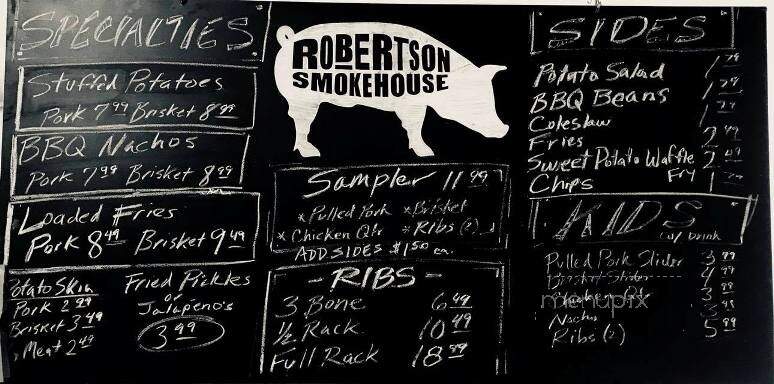 SPECIALTIES
Stuffed Potatoes
Pork 7.99 Brisket 8.99
BBQ Nachos
Pork 7.99 Brisket 8.99
Loaded Fries
Pork 8.49 Brisket 9.49
Potato Skin
Pork 2.99
Brisket 3.49
Meat 2.49
Fried Pickles
or
Jalapeno's
3.99
ROBERTSON
SMOKEHOUSE
Sampler 11.99
* Pulled Pork * Brisket
* Chicken Qtr * Ribs (2)
ADD SIDES $1.50 ea.
- RIBS -
3 Bone 6.49
1/2 Rack 10.49
Full Rack 18.99
SIDES
Potato Salad 1.79
BBQ Beans 1.79
Coleslaw 1.79
Fries 2.49
Sweet Potato Waffle Fry 2.49
Chips
KIDS
w/ Drink
Pulled Pork Slider 3.99
Brisket Slider 4.99
Nacho
Ribs (2) 5.99
menupix